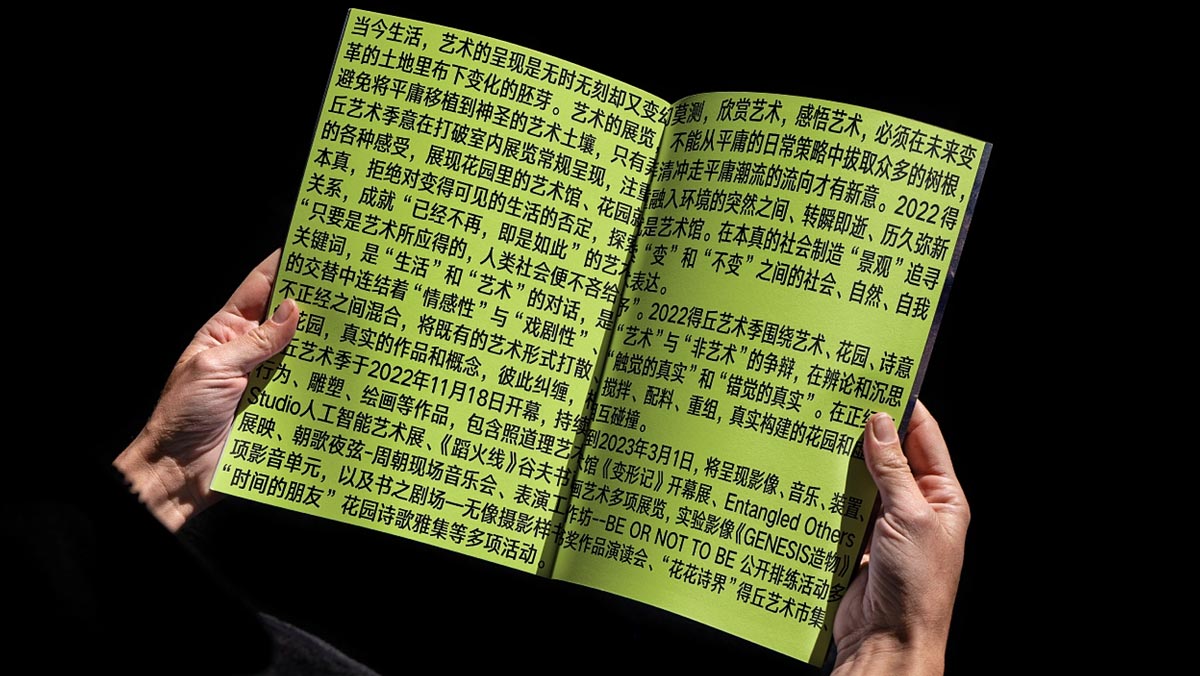 当今生活，艺术的呈现是无时无刻却又变幻莫测，欣赏艺术，感悟艺术，必须在未来变
革的土地里布下变化的胚芽。艺术的展览不能从平庸的日常策略中拔取众多的树根，
避免将平庸移植到神圣的艺术土壤，只有清冲走平庸潮流的流向才有新意。2022得
丘艺术季意在打破室内展览常规呈现，注重融入环境的突然之间、转瞬即逝、历久弥新
的各种感受，展现花园里的艺术馆、花园就是艺术馆。在本真的社会制造“景观”追寻
本真，拒绝对变得可见的生活的否定，探索“变”和“不变”之间的社会、自然、自我
关系，成就“已经不再，即是如此”的艺术表达。
“只要是艺术所应得的，人类社会便不吝给予”。2022得丘艺术季围绕艺术、花园、诗意
关键词，是“生活”和“艺术”的对话，是“艺术”与“非艺术”的争辩，在辨论和沉思
的交替中连结着“情感性”与“戏剧性”、“触觉的真实”和“错觉的真实”。在正经
不正经之间混合，将既有的艺术形式打散、搅拌、配料、重组，真实构建的花园和
花园，真实的作品和概念，彼此纠缠，相互碰撞。
丘艺术季于2022年11月18日开幕，持续到2023年3月1日，将呈现影像、音乐、装置、
行为、雕塑、绘画等作品，包含照道理艺术馆《变形记》开幕展、Entangled Others
Studio人工智能艺术展、《蹈火线》谷夫书画艺术多项展览，实验影像《GENESIS造物》
展映、朝歌夜弦-周朝现场音乐会、表演工作坊--BE OR NOT TO BE 公开排练活动多
项影音单元，以及书之剧场—无像摄影样书奖作品演读会、“花花诗界”得丘艺术市集、
“时间的朋友”花园诗歌雅集等多项活动。